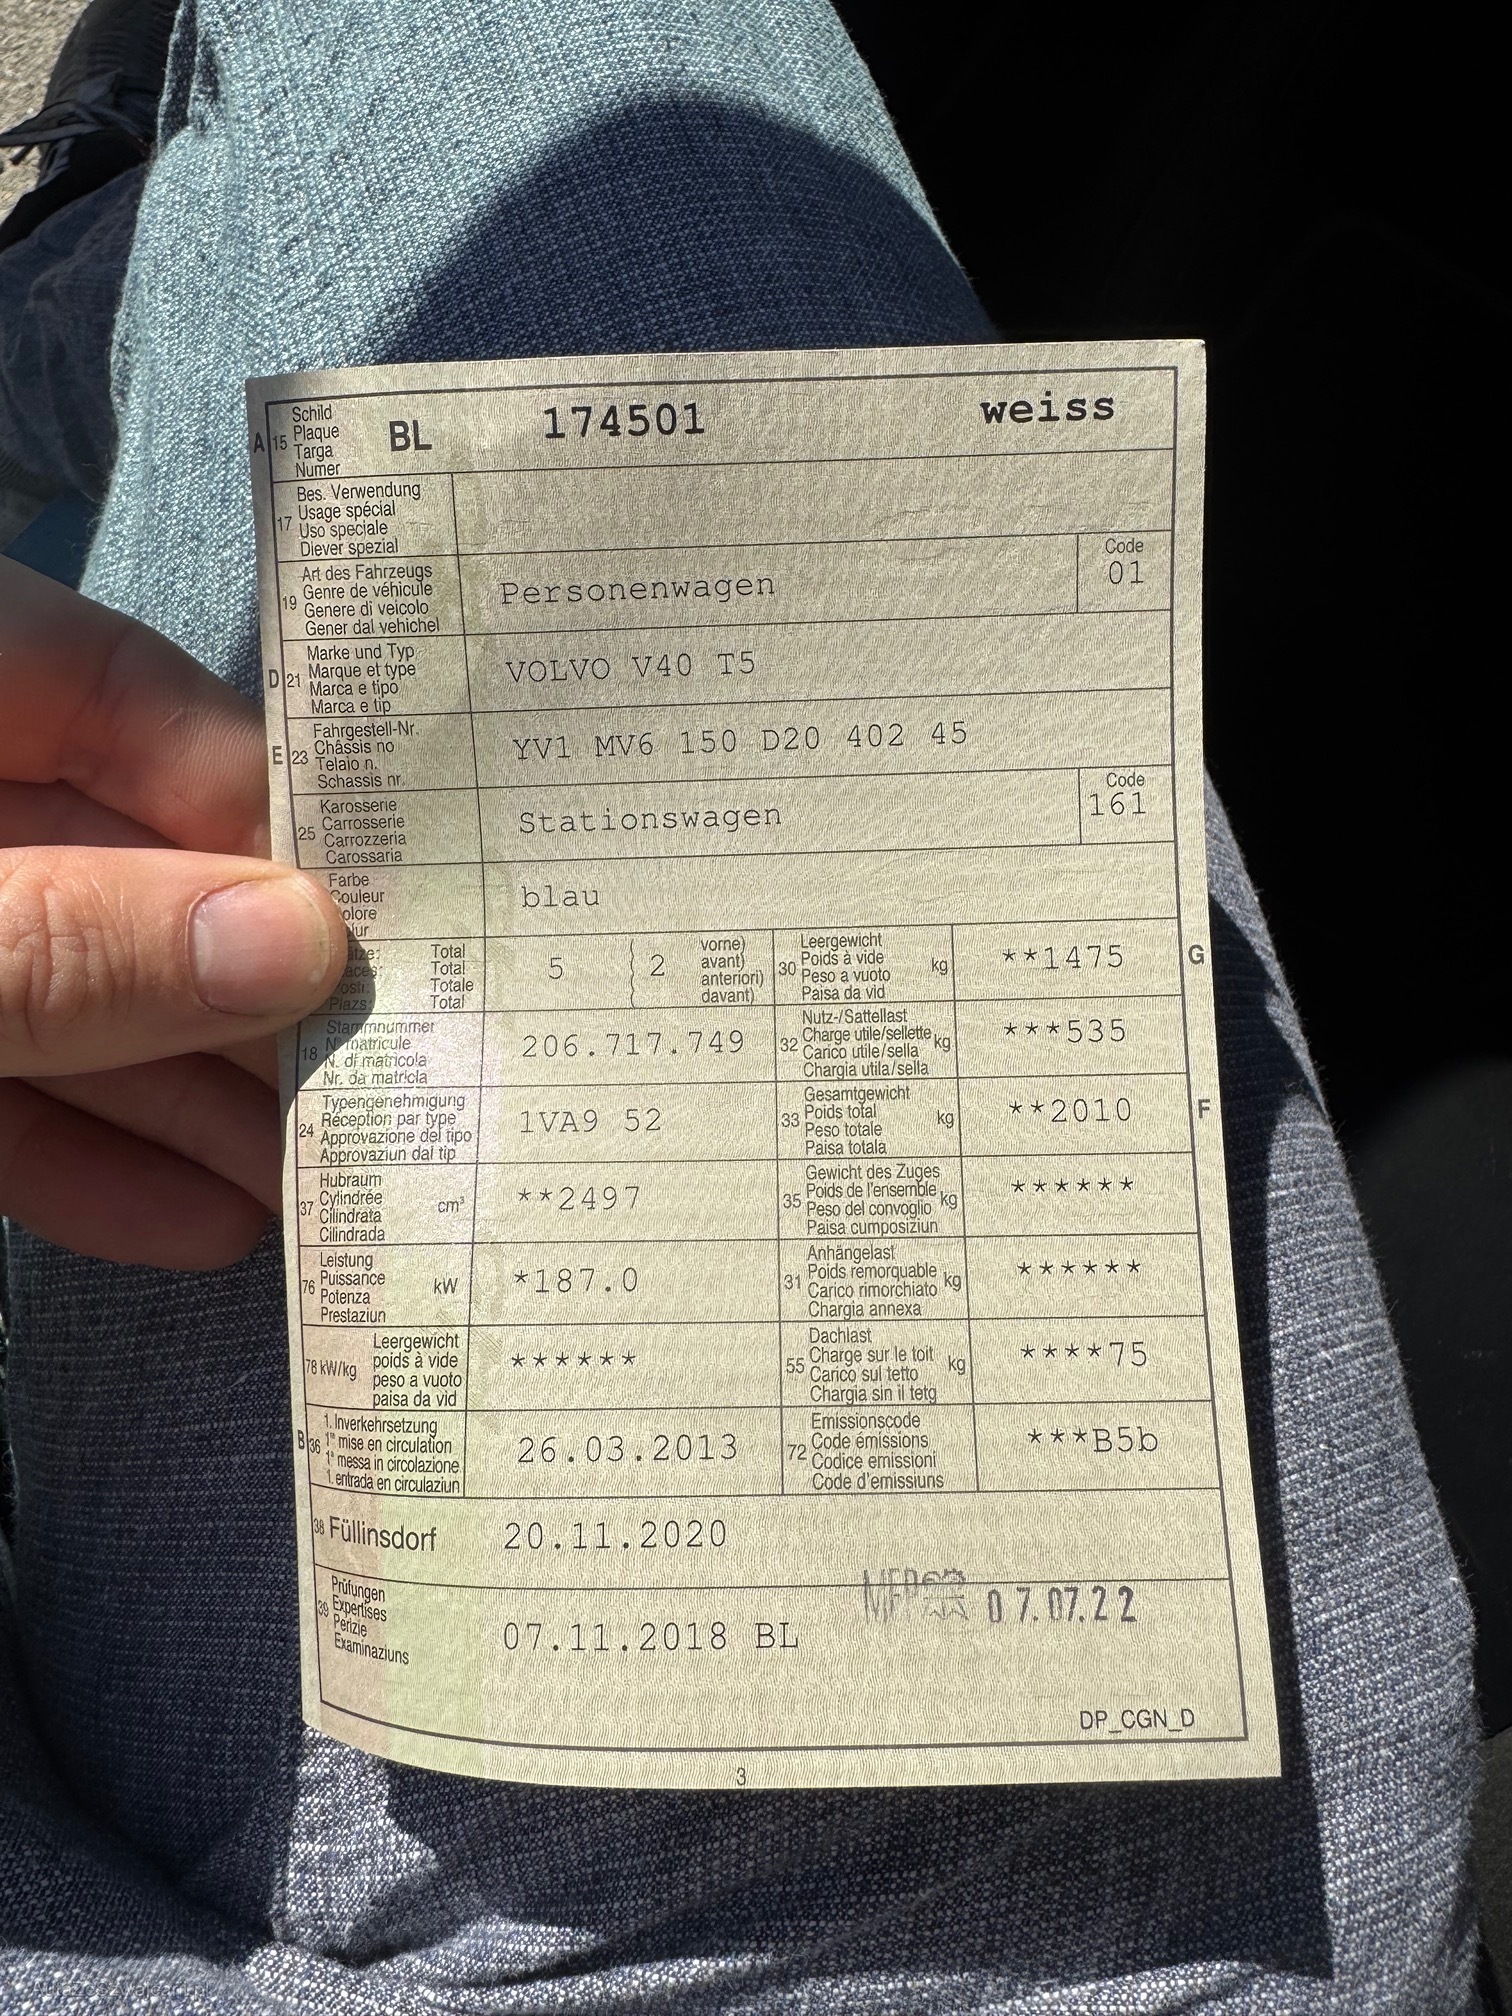 A 15 Schild Plaque Targa Numer BL 174501 weiss
17 Bes. Verwendung
Usage spécial
Uso speciale
Diever spezial
19 Art des Fahrzeugs
Genre de véhicule
Genere di veicolo
Gener dal vehichel
Personenwagen
Code
01
D 21 Marke und Typ
Marque et type
Marca e tipo
Marca e tip
VOLVO V40 T5
E 23 Fahrgestell-Nr.
Châssis no
Telaio n.
Schassis nr.
YV1 MV6 150 D20 402 45
25 Karosserie
Carrosserie
Carrozzeria
Carossaria
Stationswagen
Code
161
Farbe
Couleur
blau
Total
Total
Totale
Plazs: Total
5 (2 vorne)
avant)
anteriori)
davant)
30 Leergewicht
Poids à vide
Peso a vuoto
Paisa da vid
kg
**1475
G
18 Stammnummer
N° matricule
N. di matricola
Nr. da matricla
206.717.749
32 Nutz-/Sattellast
Charge utile/sellette
Carico utile/sella
Chargia utila/sella
kg
***535
24 Typengenehmigung
Réception par type
Approvazione del tipo
Approvaziun dal tip
1VA9 52
33 Gesamtgewicht
Poids total
Peso totale
Paisa totala
kg
**2010
F
37 Hubraum
Cylindrée
Cilindrata
Cilindrada
cm³
**2497
35 Gewicht des Zuges
Poids de l'ensemble
Peso del convoglio
Paisa cumposiziun
kg
******
76 Leistung
Puissance
Potenza
Prestaziun
kW
*187.0
31 Anhängelast
Poids remorquable
Carico rimorchiato
Chargia annexa
kg
******
78 kW/kg
Leergewicht
poids à vide
peso a vuoto
paisa da vid
******
55 Dachlast
Charge sur le toit
Carico sul tetto
Chargia sin il tetg
kg
****75
B 36 1. Inverkehrsetzung
1re mise en circulation
1a messa in circolazione
1. entrada en circulaziun
26.03.2013
72 Emissionscode
Code émissions
Codice emissioni
Code d'emissiuns
***B5b
38 Füllinsdorf 20.11.2020
39 Prüfungen
Expertises
Perizie
Examinaziuns
07.11.2018 BL
07.07.22
DP_CGN_D
3